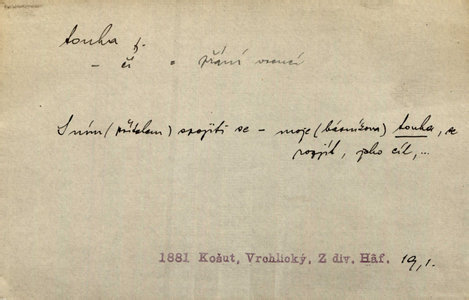 touha f.
– čí = přání vroucí
S ním (přítelem) spojiti se – moje (básníkova) touha, se
rozejít, jeho cíl,...
1881 Košut, Vrchlický, Z div. Háf. 19,1.